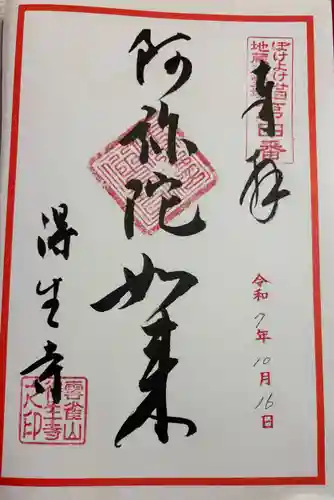 奉拝
ぼけよけ
第四番
地蔵
令和7年10月16日
阿弥陀如来
得生寺
雲雀山
得生寺
之印